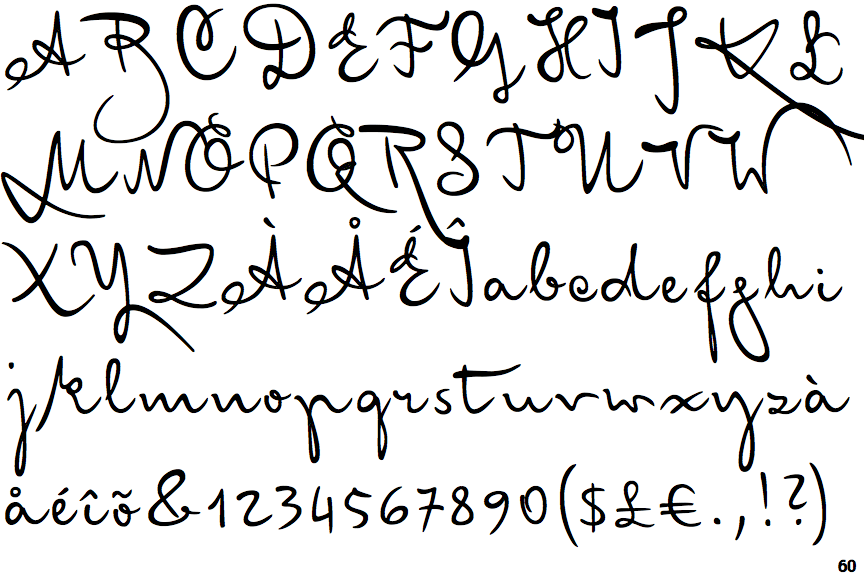 ABCDEFGHIJKL
MNOPQRSTUVW
XYZÀÅÉÎabcdefghi
jklmnopqrstuvwxyzà
åéîõ&1234567890($£€.,!?)
60